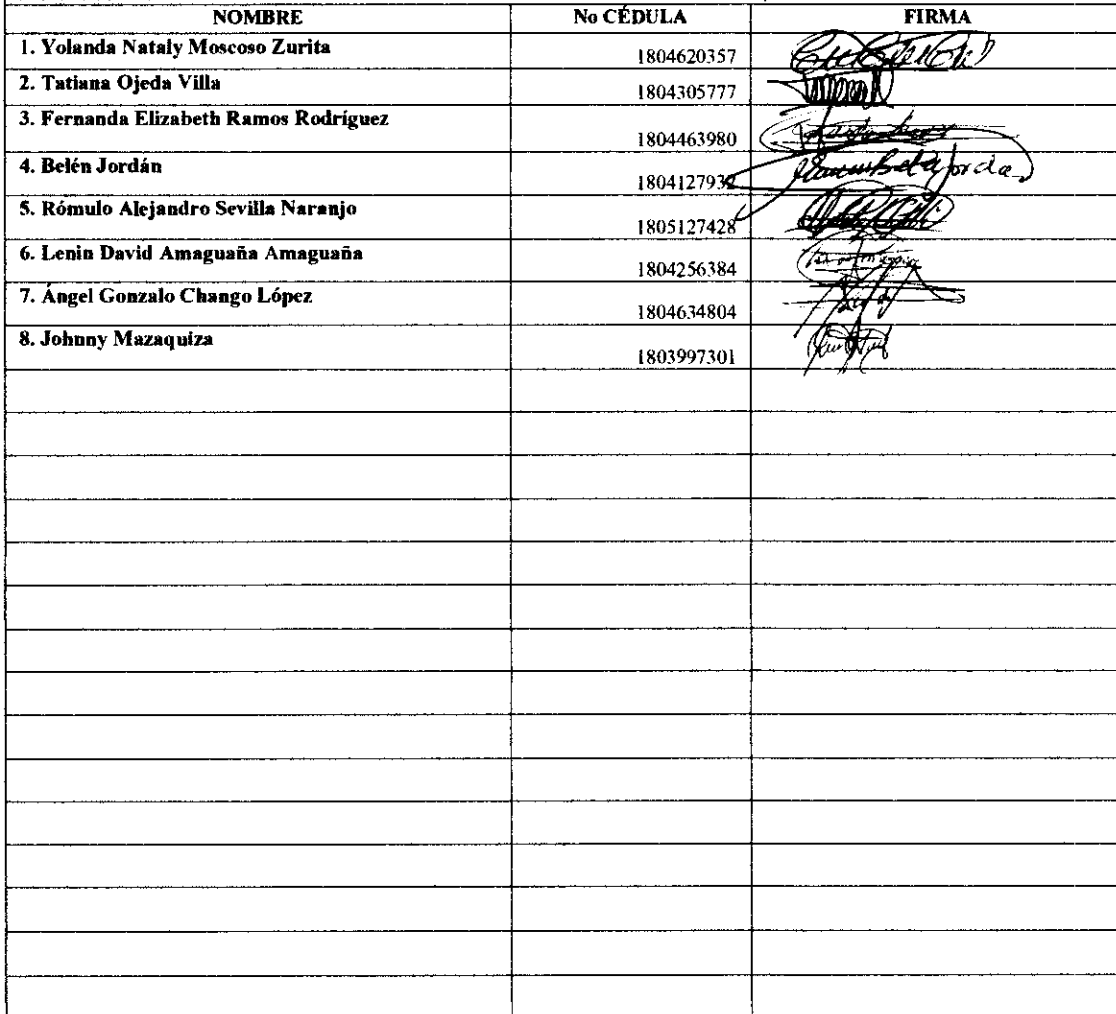 NOMBRE No CÉDULA FIRMA
1. Yolanda Nataly Moscoso Zurita 1804620357
2. Tatiana Ojeda Villa 1804305777
3. Fernanda Elizabeth Ramos Rodríguez 1804463980
4. Belén Jordán 180412793
5. Rómulo Alejandro Sevilla Naranjo 1805127428
6. Lenin David Amaguaña Amaguaña 1804256384
7. Ángel Gonzalo Chango López 1804634804
8. Johnny Mazaquiza 1803997301